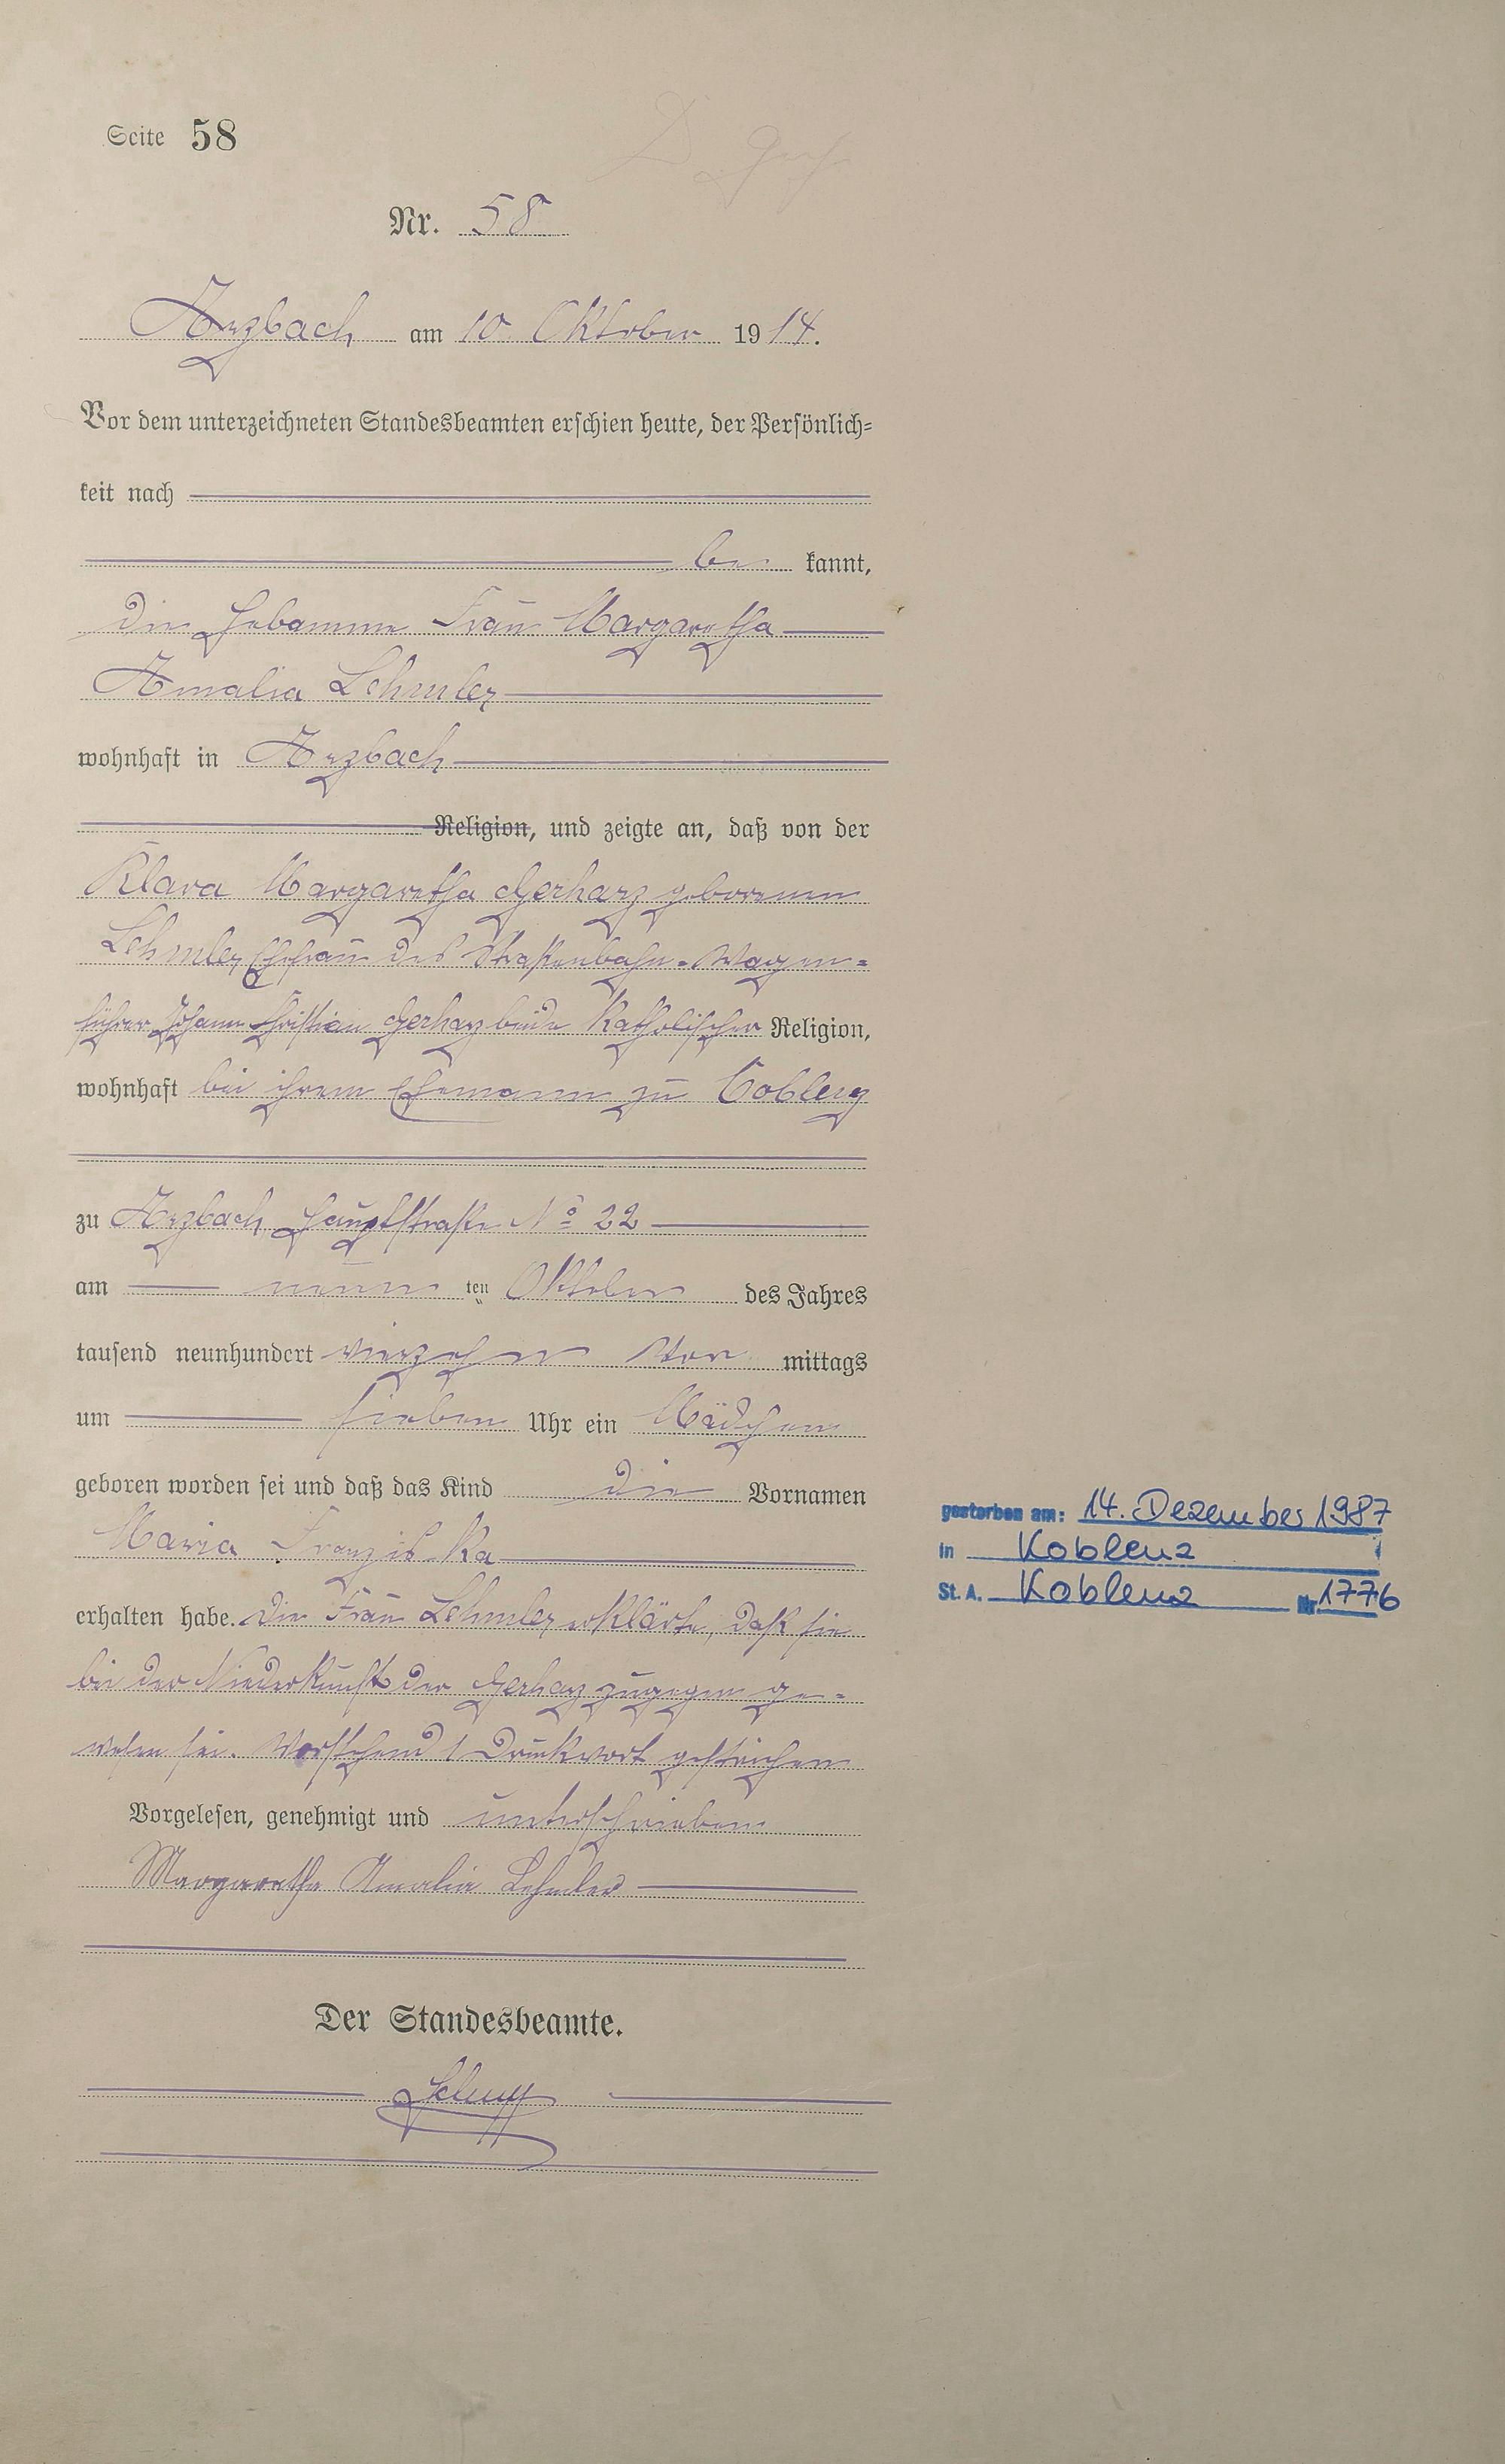 Seite 58
Nr. 58
Arzbach am 10. Oktober 1914.
Vor dem unterzeichneten Standesbeamten erschien heute, der Persönlich-
keit nach
be kannt,
die Hebamme Frau Margaretha
Amalia Lehmler
wohnhaft in Arzbach
Religion, und zeigte an, daß von der
Klara Margaretha Gerharz geborenen
Lehmler, Ehefrau des Straßenbahn-Wagen-
führer Johann Christian Gerharz beide Katholischer Religion,
wohnhaft bei ihrem Ehemann zu Coblenz
zu Arzbach, Hauptstraße No 22
am neun ten Oktober des Jahres
tausend neunhundert vierzehn Vor mittags
um sieben Uhr ein Mädchen
geboren worden sei und daß das Kind die Vornamen
Maria Franziska
erhalten habe. Die Frau Lehmler erklärte, daß sie
bei der Niederkunft der Gerharz zugegen ge-
wesen sei. Vorstehend 1 Druckwort gestrichen
Vorgelesen, genehmigt und unterschrieben
Margaretha Amalia Lehmler
Der Standesbeamte.
gestorben am: 14. Dezember 1987
in Koblenz
St. A. Koblenz Nr. 1776